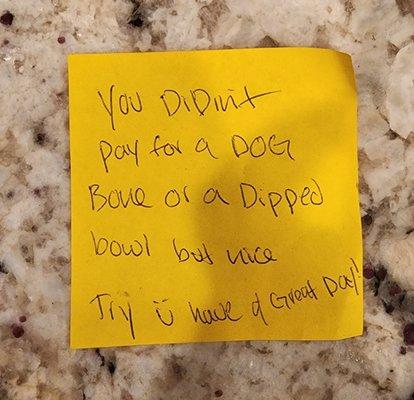 You DiDin't
pay for a DOG
Bone or a Dipped
bowl but nice
Try ü have a Great Day!